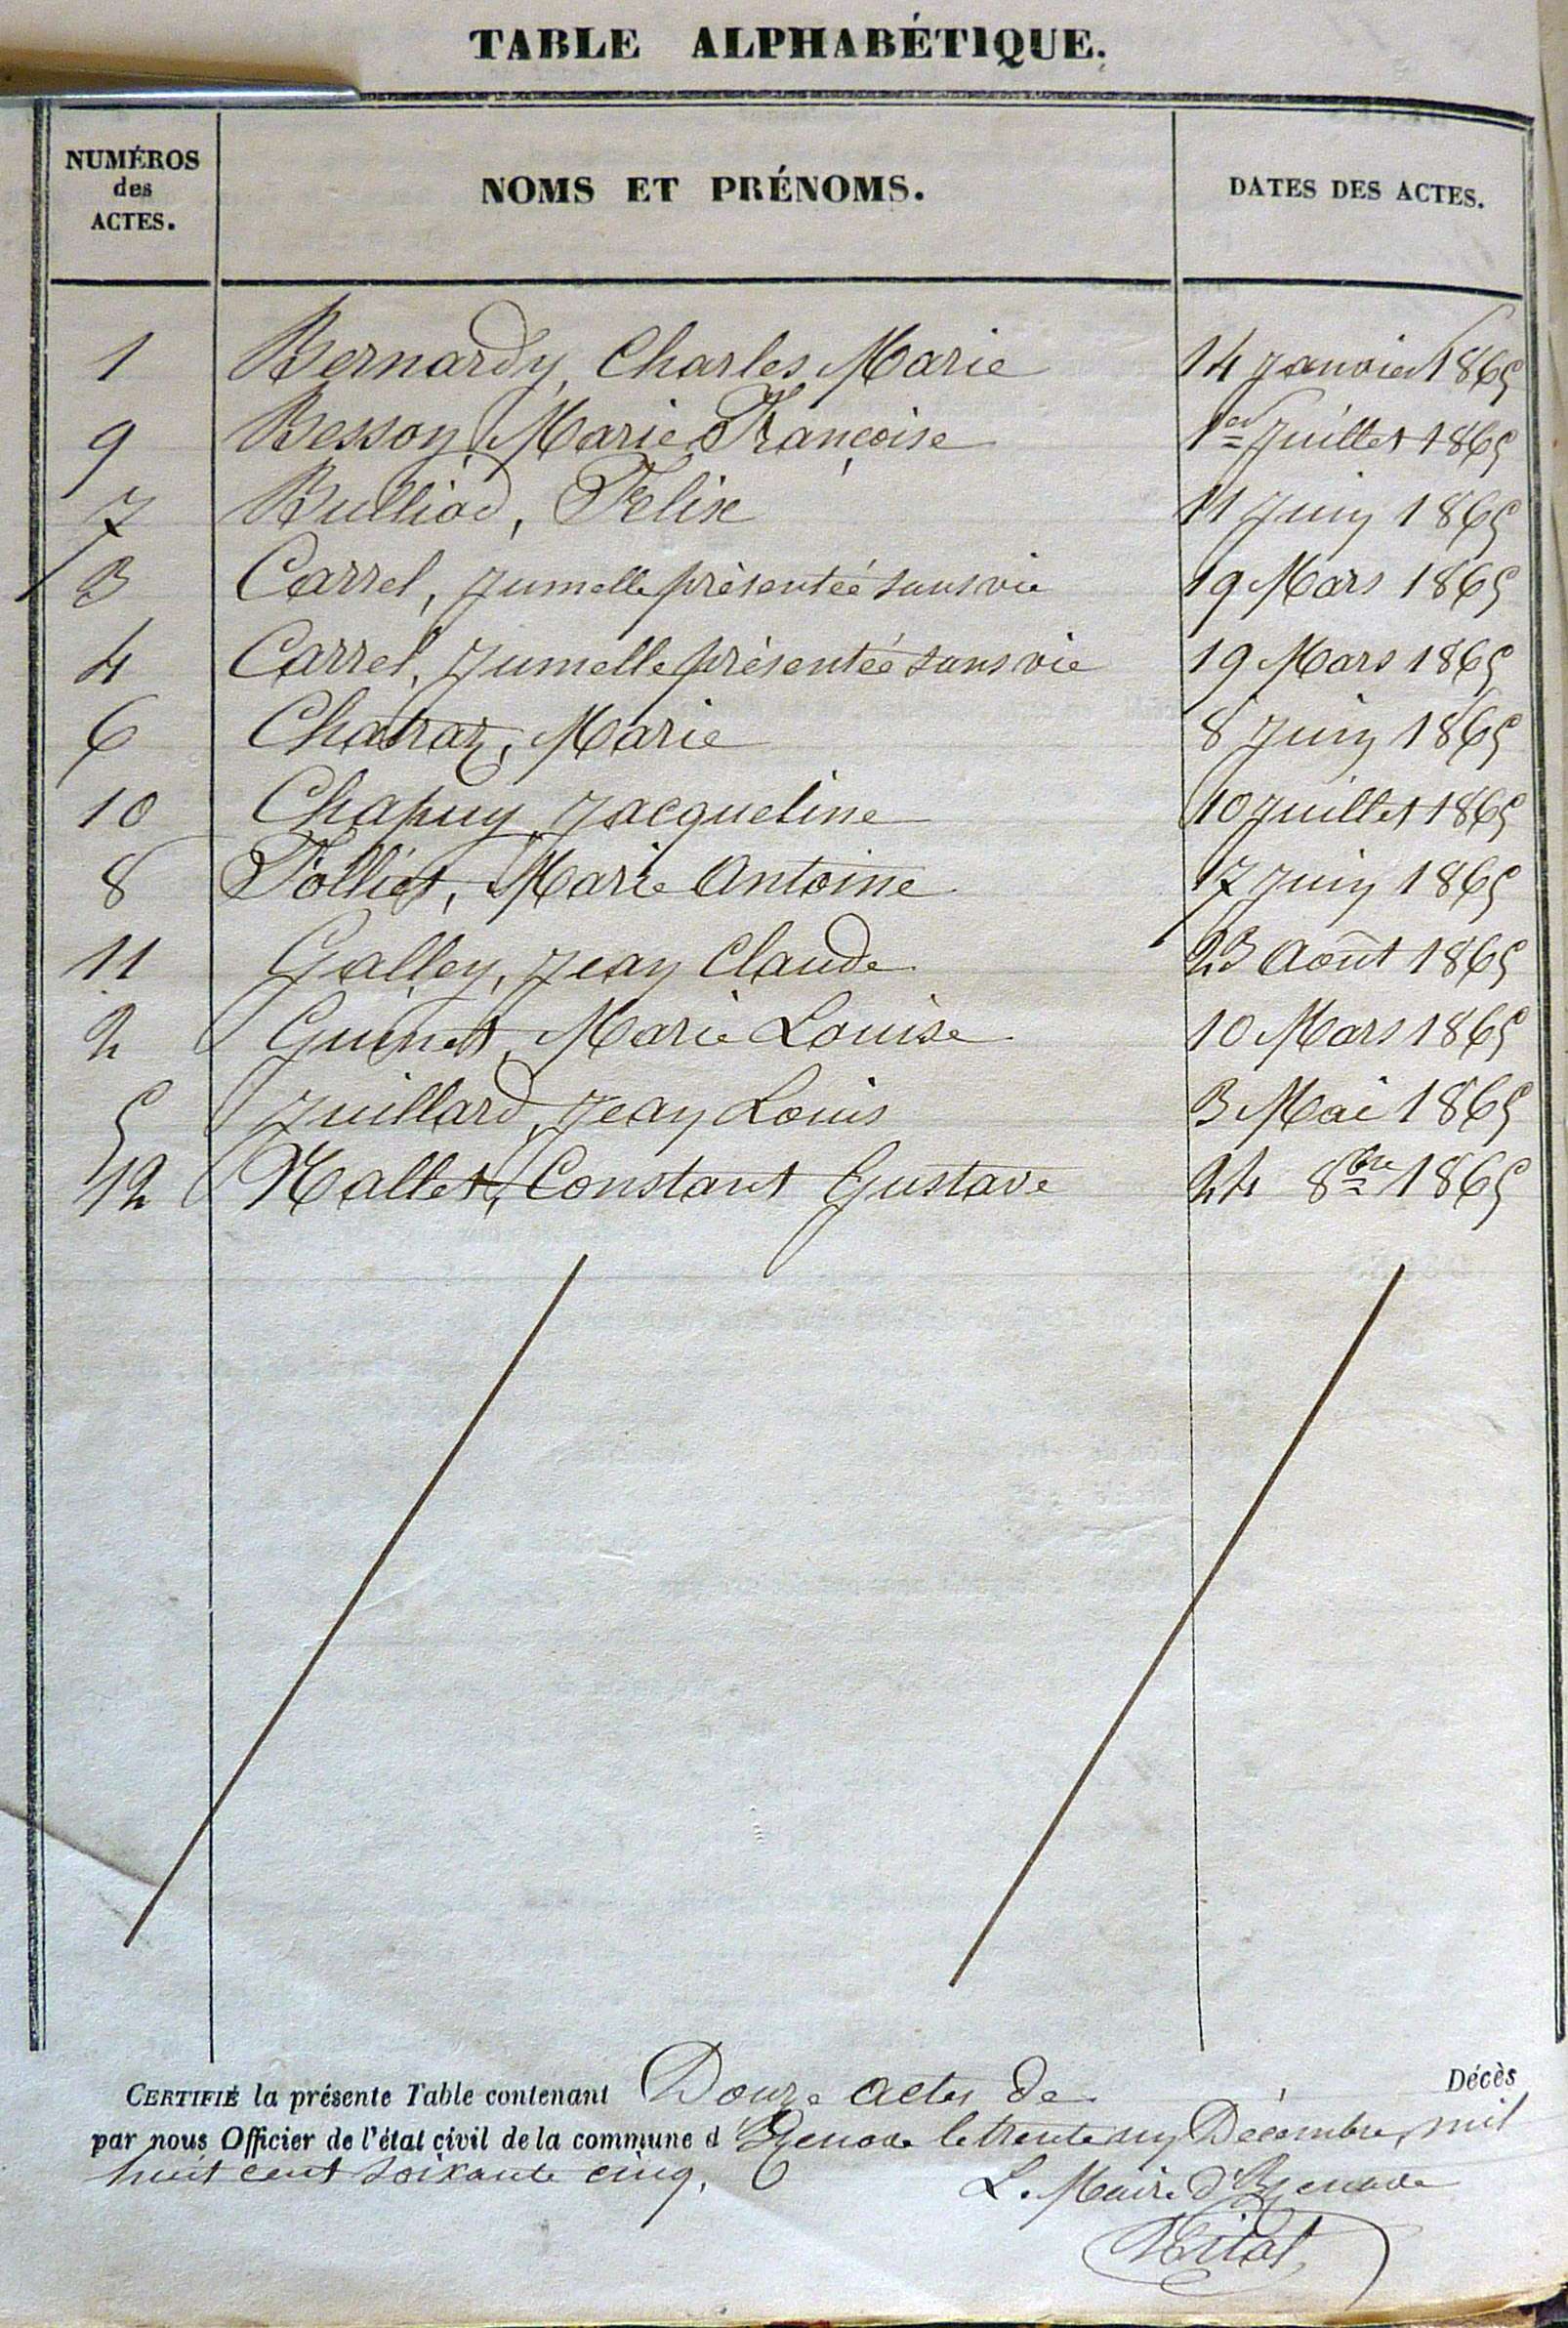 TABLE ALPHABÉTIQUE.
NUMÉROS des ACTES. NOMS ET PRÉNOMS. DATES DES ACTES.
1 Bernardy, Charles Marie 14 Janvier 1865
9 Besson, Marie Françoise 1er Juillet 1865
7 Bulliod, Felix 11 Juin 1865
3 Carrel, Jumelle présentée sans vie 19 Mars 1865
4 Carrel, Jumelle présentée sans vie 19 Mars 1865
6 Chatraz, Marie 8 Juin 1865
10 Chapuy, Jacqueline 10 Juillet 1865
8 Folliet, Marie Antoine 17 Juin 1865
11 Galley, Jean Claude 23 Août 1865
2 Guinet, Marie Louise 10 Mars 1865
5 Juillard, Jean Louis 3 Mai 1865
12 Mallet, Constant Gustave 24 8bre 1865
CERTIFIÉ la présente Table contenant Douze actes de Décès
par nous Officier de l'état civil de la commune d' le trente un Décembre, mil
huit cent soixante cinq.
L. Maire